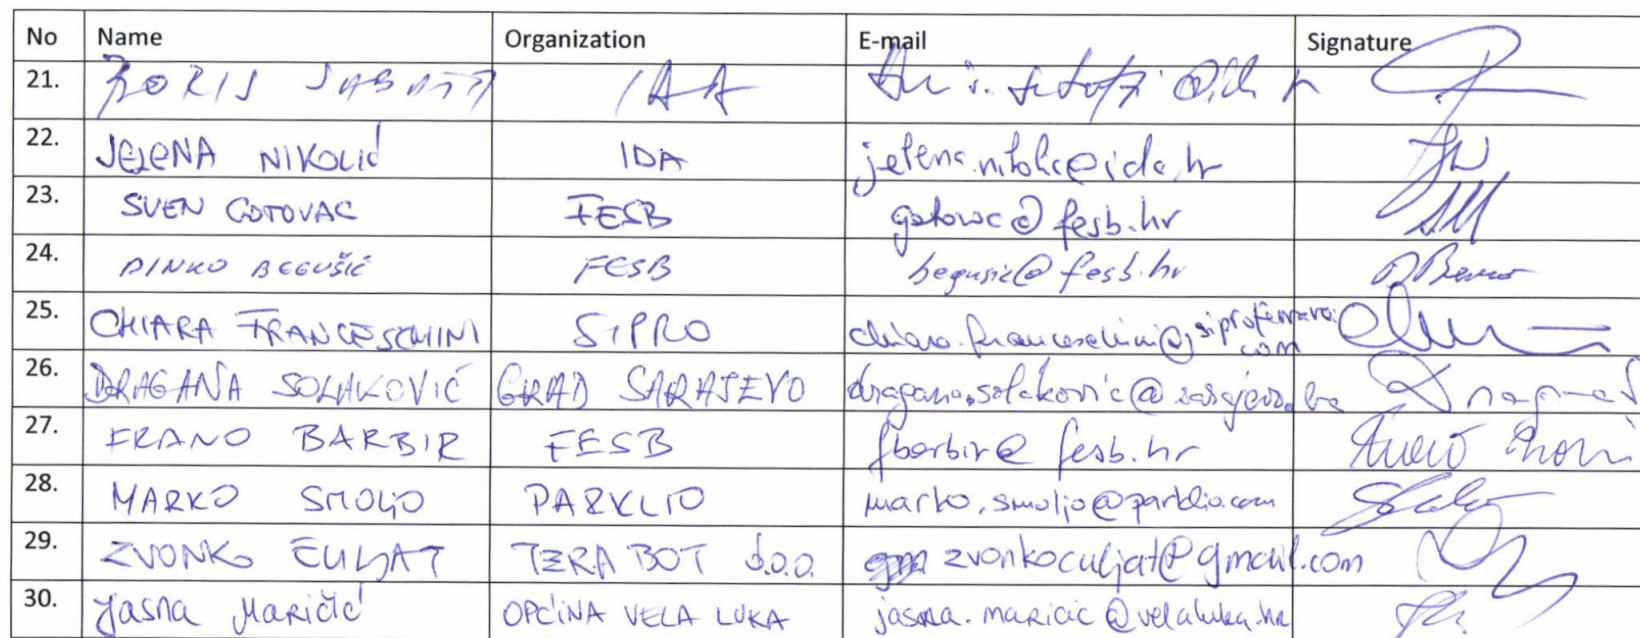 No Name Organization E-mail Signature
21. BORIS
22. JELENA NIKOLIĆ IDA jelena.nikolic@ida.hr
23. SVEN GOTOVAC FESB gotovac@fesb.hr
24. DINKO BEGUŠIĆ FESB begusic@fesb.hr
25. CHIARA FRANCESCHINI SIPRO chiara.franceschini@siproferrara.com
26. DRAGANA SOLAKOVIĆ GRAD SARAJEVO dragana.solakovic@sarajevo.ba
27. FRANO BARBIR FESB fbarbir@fesb.hr
28. MARKO SMOLJO PARKLIO marko.smoljo@parklio.com
29. ZVONKO ČULJAT TERABOT d.o.o. zvonkoculjat@gmail.com
30. Jasna Maričić OPĆINA VELA LUKA jasna.maricic@velaluka.hr